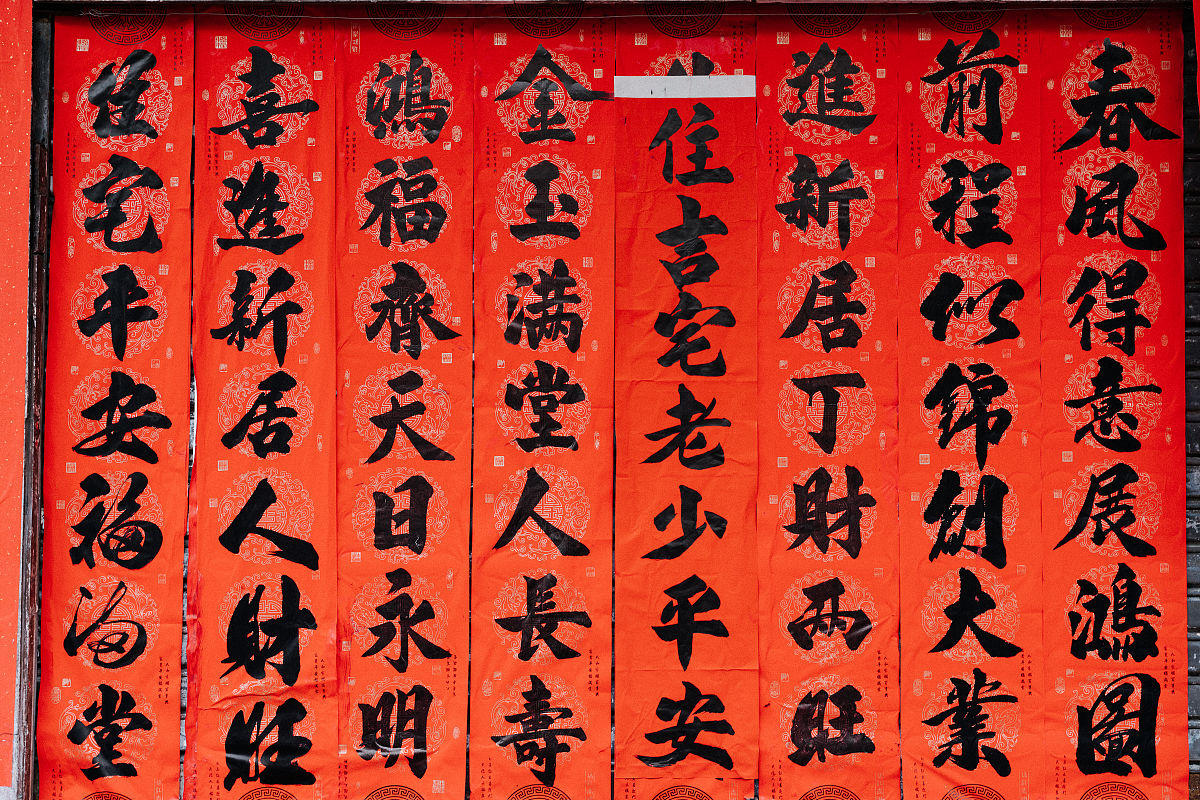 春風得意展鴻圖
前程似錦創大業
進新居丁財两旺
住吉宅老少平安
金玉满堂人長壽
鴻福齊天日永明
喜進新居人財旺
佳宅平安福满堂